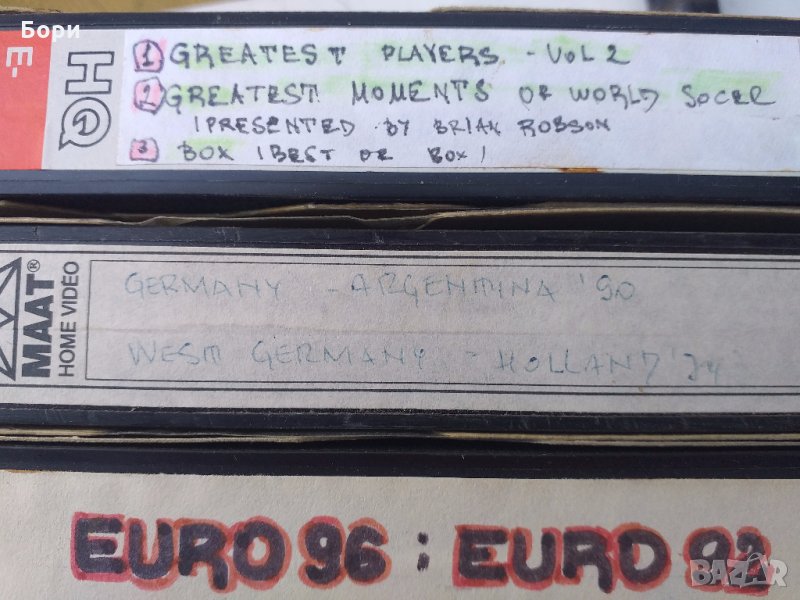 Бори
E-
HQ
1 GREATEST PLAYERS - VOL 2
2 GREATEST MOMENTS OF WORLD SOCER
(PRESENTED BY BRIAN ROBSON
3 BOX (BEST OF BOX)
MAAT®
HOME VIDEO
GERMANY - ARGENTINA '90
WEST GERMANY - HOLLAND '74
EURO 96 : EURO 92
BAZAR